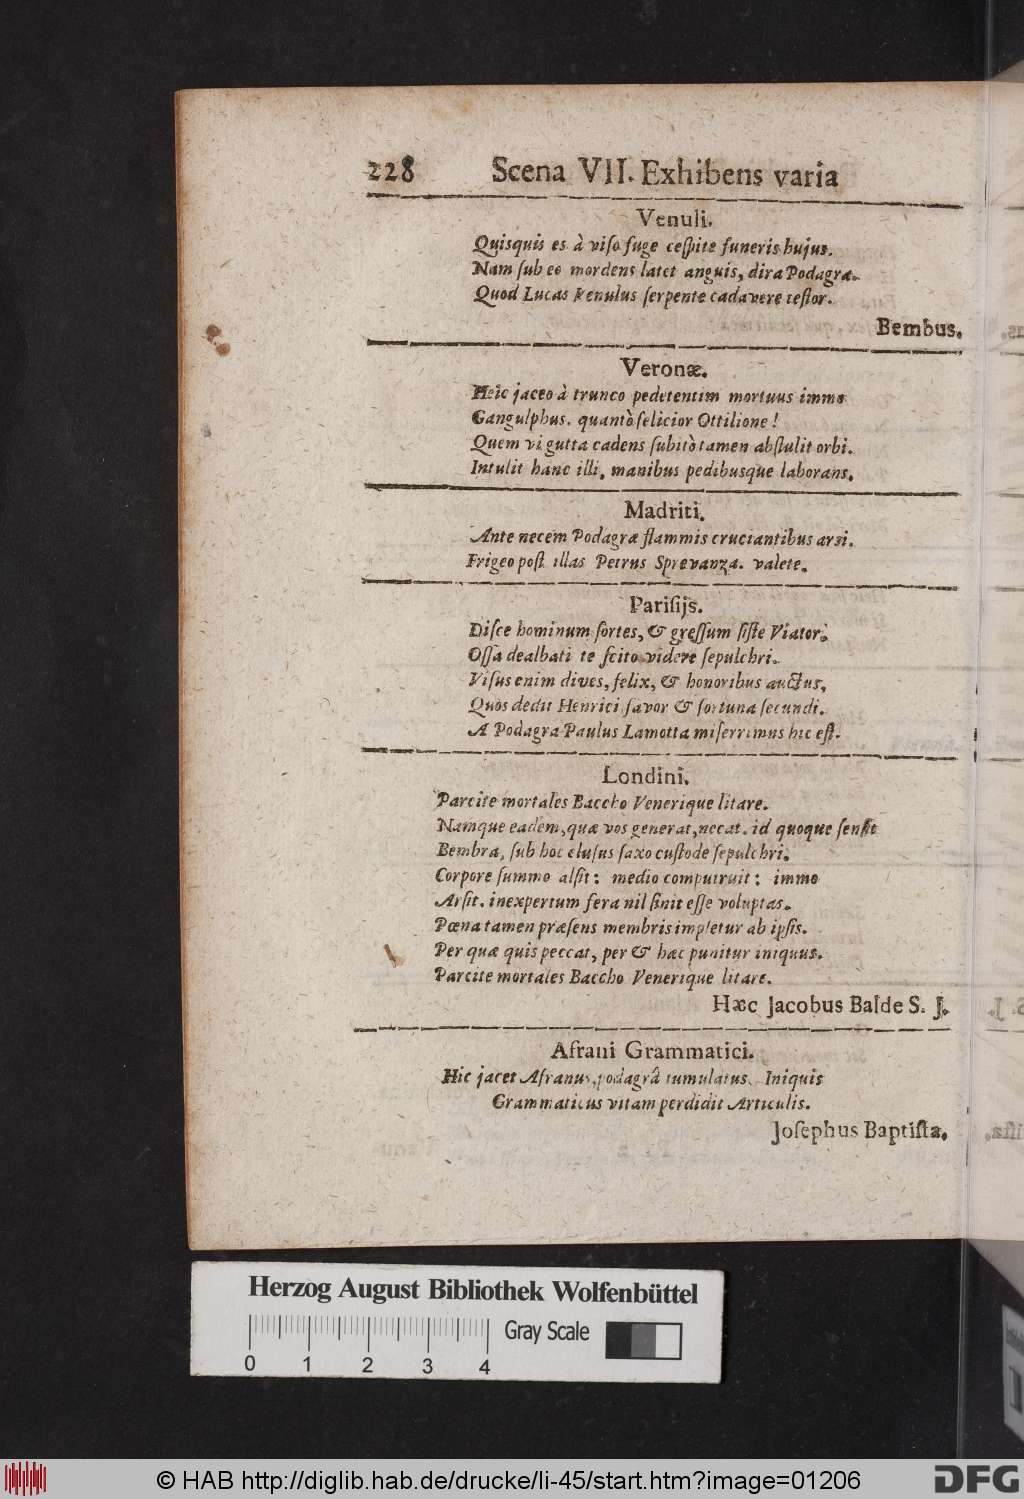 228 Scena VII. Exhibens varia
Venuli.
Quisquis es à viso fuge cespite funeris hujus.
Nam sub eo mordens latet anguis, dira Podagra.
Quod Lucas Venulus serpente cadavere testor.
Bembus.
Veronæ.
Heic jaceo à trunco pedetentim mortuus immo
Gangulphus. quantò felicior Ottilione!
Quem vi gutta cadens subitò tamen abstulit orbi.
Intulit hanc illi, manibus pedibusque laborans.
Madriti.
Ante necem Podagræ flammis cruciantibus arsi.
Frigeo post illas Petrus Sprevanza. valete.
Parisijs.
Disce hominum sortes, & gressum siste Viator,
Ossa dealbati te scito videre sepulchri.
Visus enim dives, felix, & honoribus auctus,
Quos dedit Henrici favor & fortuna secundi.
A Podagra Paulus Lamotta miserrimus hic est.
Londini.
Parcite mortales Baccho Venerique litare.
Namque eadem, quæ vos generat, necat. id quoque sensit
Bembra, sub hoc elusus saxo custode sepulchri.
Corpore summo alsit: medio computruit: immo
Arsit. inexpertum fera nil sinit esse voluptas.
Pœna tamen præsens membris impletur ab ipsis.
Per quæ quis peccat, per & hæc punitur iniquus.
Parcite mortales Baccho Venerique litare.
Hæc Jacobus Balde S. J.
Afrani Grammatici.
Hic jacet Afranus, podagrâ tumulatus. Iniquis
Grammaticus vitam perdidit Articulis.
Josephus Baptista.
Herzog August Bibliothek Wolfenbüttel
Gray Scale
0 1 2 3 4
© HAB http://diglib.hab.de/drucke/li-45/start.htm?image=01206
DFG